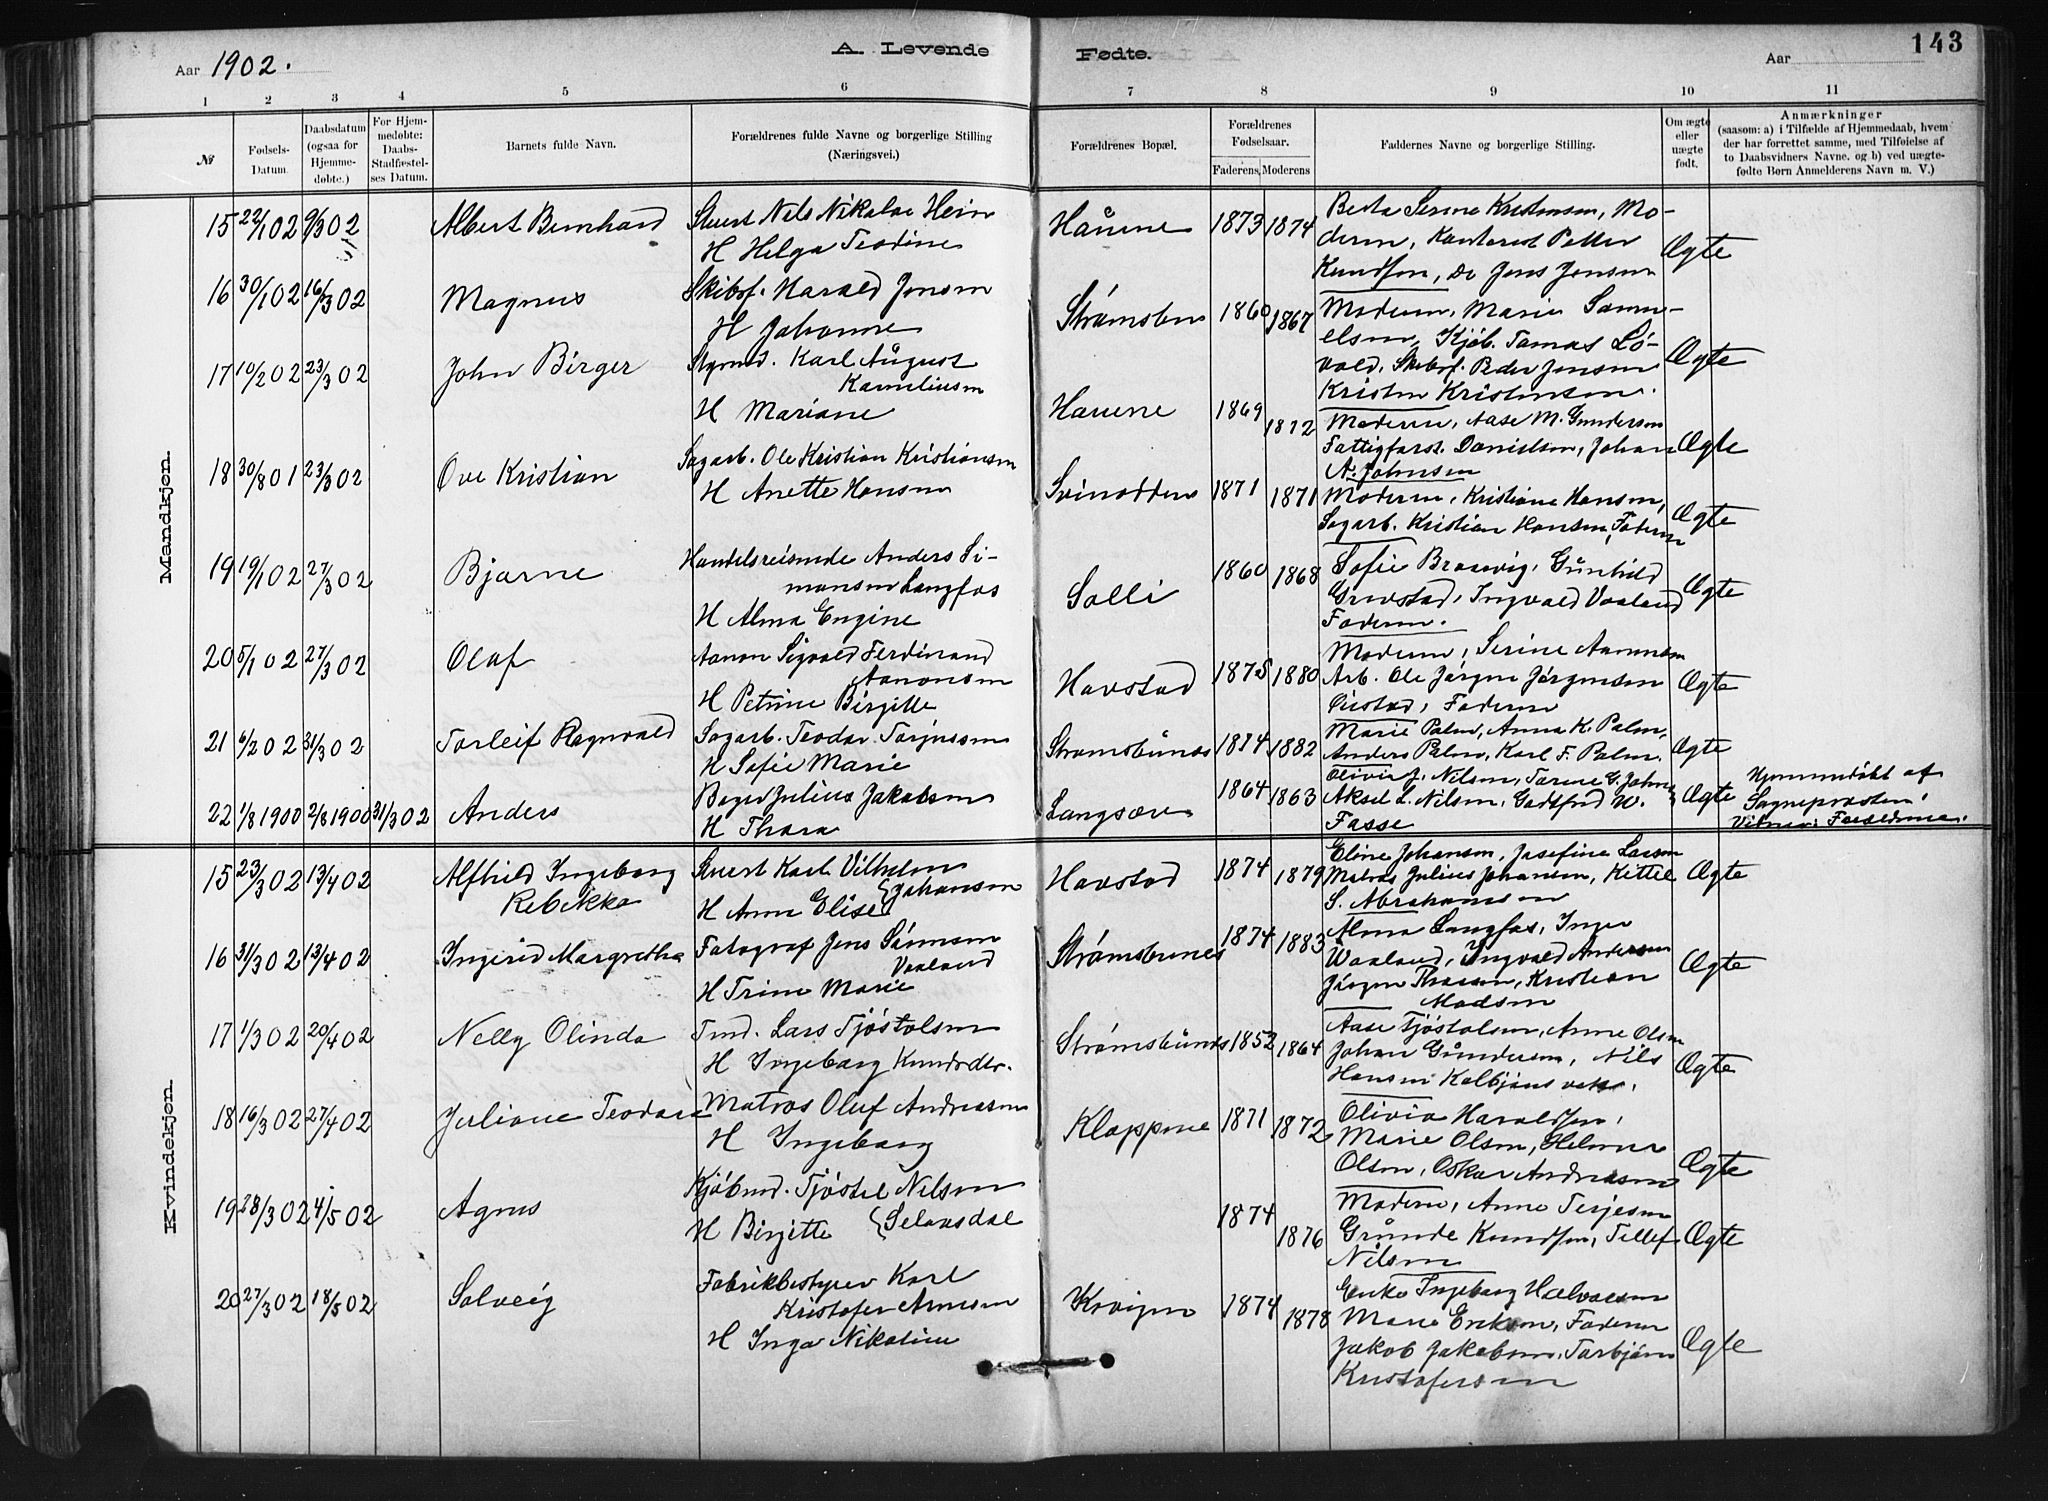 Aar 1902.
A. Levende
Fødte.
Aar
143
1 2 3 4 5 6 7 8 9 10 11
№
Fødsels-Datum.
Daabsdatum (ogsaa for Hjemme-døbte.)
For Hjem-medøbte: Daabs-Stadfæstel-ses Datum.
Barnets fulde Navn.
Forældrenes fulde Navne og borgerlige Stilling (Næringsvei.)
Forældrenes Bopæl.
Forældrenes Fødselsaar.
Faderens, Moderens
Faddernes Navne og borgerlige Stilling.
Om ægte eller uægte født.
Anmærkninger
(saasom: a) i Tilfælde af Hjemmedaab, hvem
der har forrettet samme, med Tilføielse af
to Daabsvidners Navne, og b) ved uægte-
fødte Børn Anmelderens Navn m. V.)
Mandkjøn.
15 22/1 02 9/3 02 Albert Bernhard
Stuert Nils Nikolai Hein
H Helga Teodine
Håvene 1873 1874
Berta Serine Kristensen, Mo-
deren, Kontorist Petter
Knudsen, Do Jens Jensen
Ægte
16 30/1 02 16/3 02 Magnus
Skibsf. Harald Jensen
H Johanne
Strømsbu 1860 1867
Moderen, Marie Samu-
elsen, Kjøb. Tomas Lø-
vold, Skibsf. Peder Jensen
Kristen Kristensen.
Ægte
17 10/2 02 23/3 02 John Birger
Styrmd. Karl August
Korneliusen
H Mariane
Havene 1869 1872
Moderen, Aase M. Gundersen
Fattigforst. Danielsen, Johan
A. Johnsen
Ægte
18 30/8 01 23/3 02 Ove Kristian
Sagarb. Ole Kristian Kristiansen
H Anette Hansen
Svinodden 1871 1871
Moderen, Kristiane Hansen,
Sagarb. Kristian Hansen, Faderen
Ægte
19 19/1 02 27/3 02 Bjarne
Handelsreisende Anders Si-
monsen Langfos
H Alma Engine
Solli 1860 1868
Sofie Brosvig, Gunhild
Grevstad, Ingvald Vaaland
Faderen.
Ægte
20 5/1 02 27/3 02 Olaf
Aanon Sigvald Ferdinand
Aanonsen
H Petrine Birgitte
Havstad 1875 1880
Moderen, Serine Aanonsen
Arb. Ole Jørgen Jørgensen
Øiestad, Faderen
Ægte
21 6/2 02 31/3 02 Torleif Ragnvald
Sagarb. Teodor Torjussen
H Sofie Marie
Strømsbunes 1874 1882
Marie Palm, Anna K. Palm,
Anders Palm, Karl F. Palm.
Ægte
22 1/8 1900 2/8 1900 31/3 02 Anders
Bager Julius Jakobsen
H Thora
Langsæv 1864 1863
Olivie J. Nilsen, Torine G. Johnsen
Aksel L. Nilsen, Godtfred W.
Fasse
Ægte
Hjemmedøbt af
Sognepræsten.
Vitner: Forældrene.
Kvindekjøn.
15 23/3 02 13/4 02 Alfhild Ingeborg
Rebekka
Stuert Karl Vilhelm
Johansen
H Anne Elise
Havstad 1874 1879
Eline Johansen, Josefine Larsen
Matros Julius Johansen, Kittil
S. Abrahamsen
Ægte
16 31/3 02 13/4 02 Ingerid Margrethe
Fotograf Jens Simonsen
Vaaland
H Trine Marie
Strømsbunes 1874 1883
Alma Langfos, Inger
Waaland, Ingvald Andersen
Jørgen Thorsen, Kristian
Madsen
Ægte
17 1/3 02 20/4 02 Nelly Olinda
Tmd. Lars Tjøstolsen
H Ingeborg Knudsdtr.
Strømsbunes 1852 1864
Aase Tjøstolsen, Anne Olsen
Johan Gundersen, Nils
Hansen Kolbjønsvik.
Ægte
18 16/3 02 27/4 02 Juliane Teodora
Matros Oluf Andreasen
H Ingeborg
Kloppene 1871 1872
Olivia Haraldsen,
Marie Olsen, Helmer
Olsen, Oskar Andreasen
Ægte
19 28/3 02 4/5 02 Agnes
Kjøbmd. Tjøstel Nilsen
Selaasdal
H Birgitte
1874 1876
Moderen, Anne Terjesen
Grunde Knudsen, Tellef
Nilsen
Ægte
20 27/3 02 18/5 02 Solveig
Fabrikbestyrer Karl
Kristofer Arnesen
H Inga Nikoline
Krøigen 1874 1878
Enke Ingeborg Halvorsen
Marie Eriksen, Faderen
Jakob Jakobsen, Torbjørn
Kristofersen
Ægte